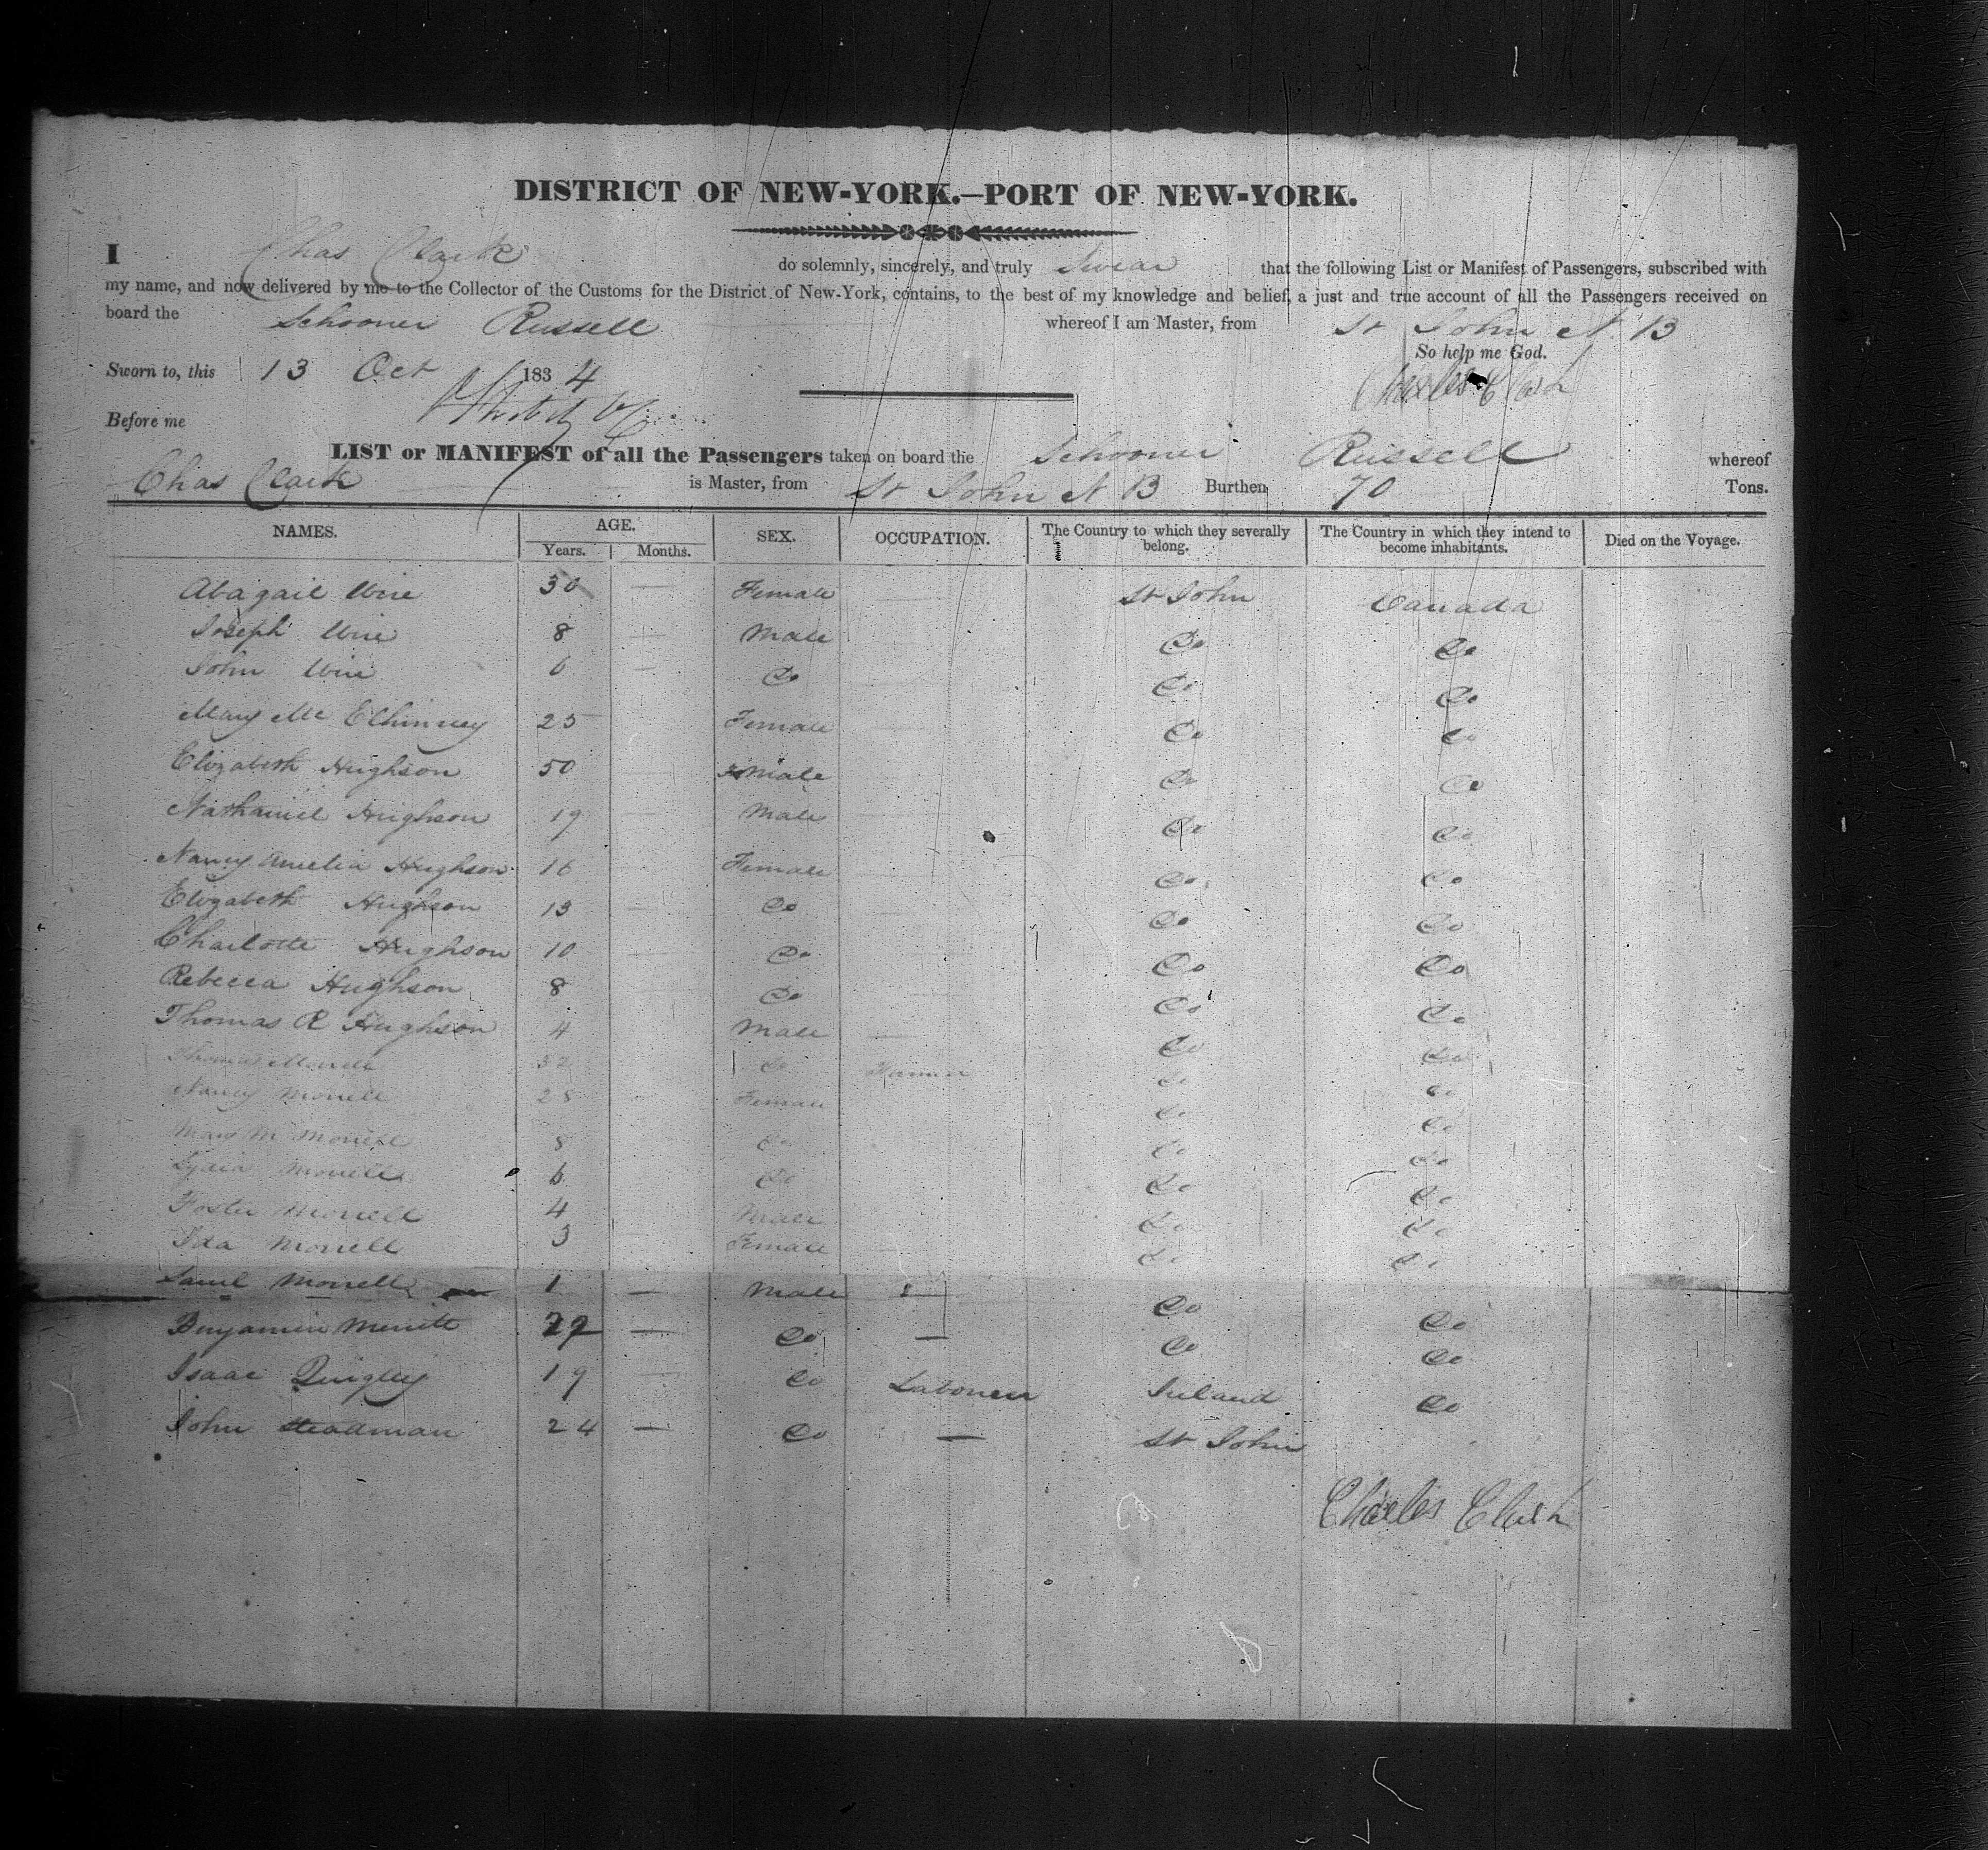 DISTRICT OF NEW-YORK.—PORT OF NEW-YORK.
I Chas Clark do solemnly, sincerely, and truly swear that the following List or Manifest of Passengers, subscribed with
my name, and now delivered by me to the Collector of the Customs for the District of New-York, contains, to the best of my knowledge and belief, a just and true account of all the Passengers received on
board the Schooner Russell whereof I am Master, from St John N. B
So help me God.
Sworn to, this 13 Oct 1834 Charles Clark
Before me
LIST or MANIFEST of all the Passengers taken on board the Schooner Russell whereof
Chas Clark is Master, from St John N B Burthen 70 Tons.
NAMES. AGE. Years. Months. SEX. OCCUPATION. The Country to which they severally belong. The Country in which they intend to become inhabitants. Died on the Voyage.
Abagail 30 — Female St John Canada
Joseph 8 — Male Do Do
John 6 — Do Do Do
Mary Mc Elhinney 25 Female Do Do
Elizabeth Hughson 50 — Female Do Do
Nathaniel Hughson 19 — Male Do Do
Nancy Amelia Hughson 16 — Female Do Do
Elizabeth Hughson 13 — Do Do Do
Charlotte Hughson 10 — Do Do Do
Rebecca Hughson 8 — Do Do Do
Thomas R Hughson 4 Male Do Do
Thomas Morrell 32 Do Farmer Do Do
Nancy Morrell 28 Female Do Do
Mary M Morrell 8 Do Do Do
Lydia Morrell 6 Do Do Do
Foster Morrell 4 Male Do Do
Ida Morrell 3 Female Do Do
Saml Morrell 1 — Male Do Do
Benjamin Merritt — Do — Do Do
Isaac Quigley 19 — Do Labourer Ireland Do
John Steadman 24 — Do — St John
Charles Clark